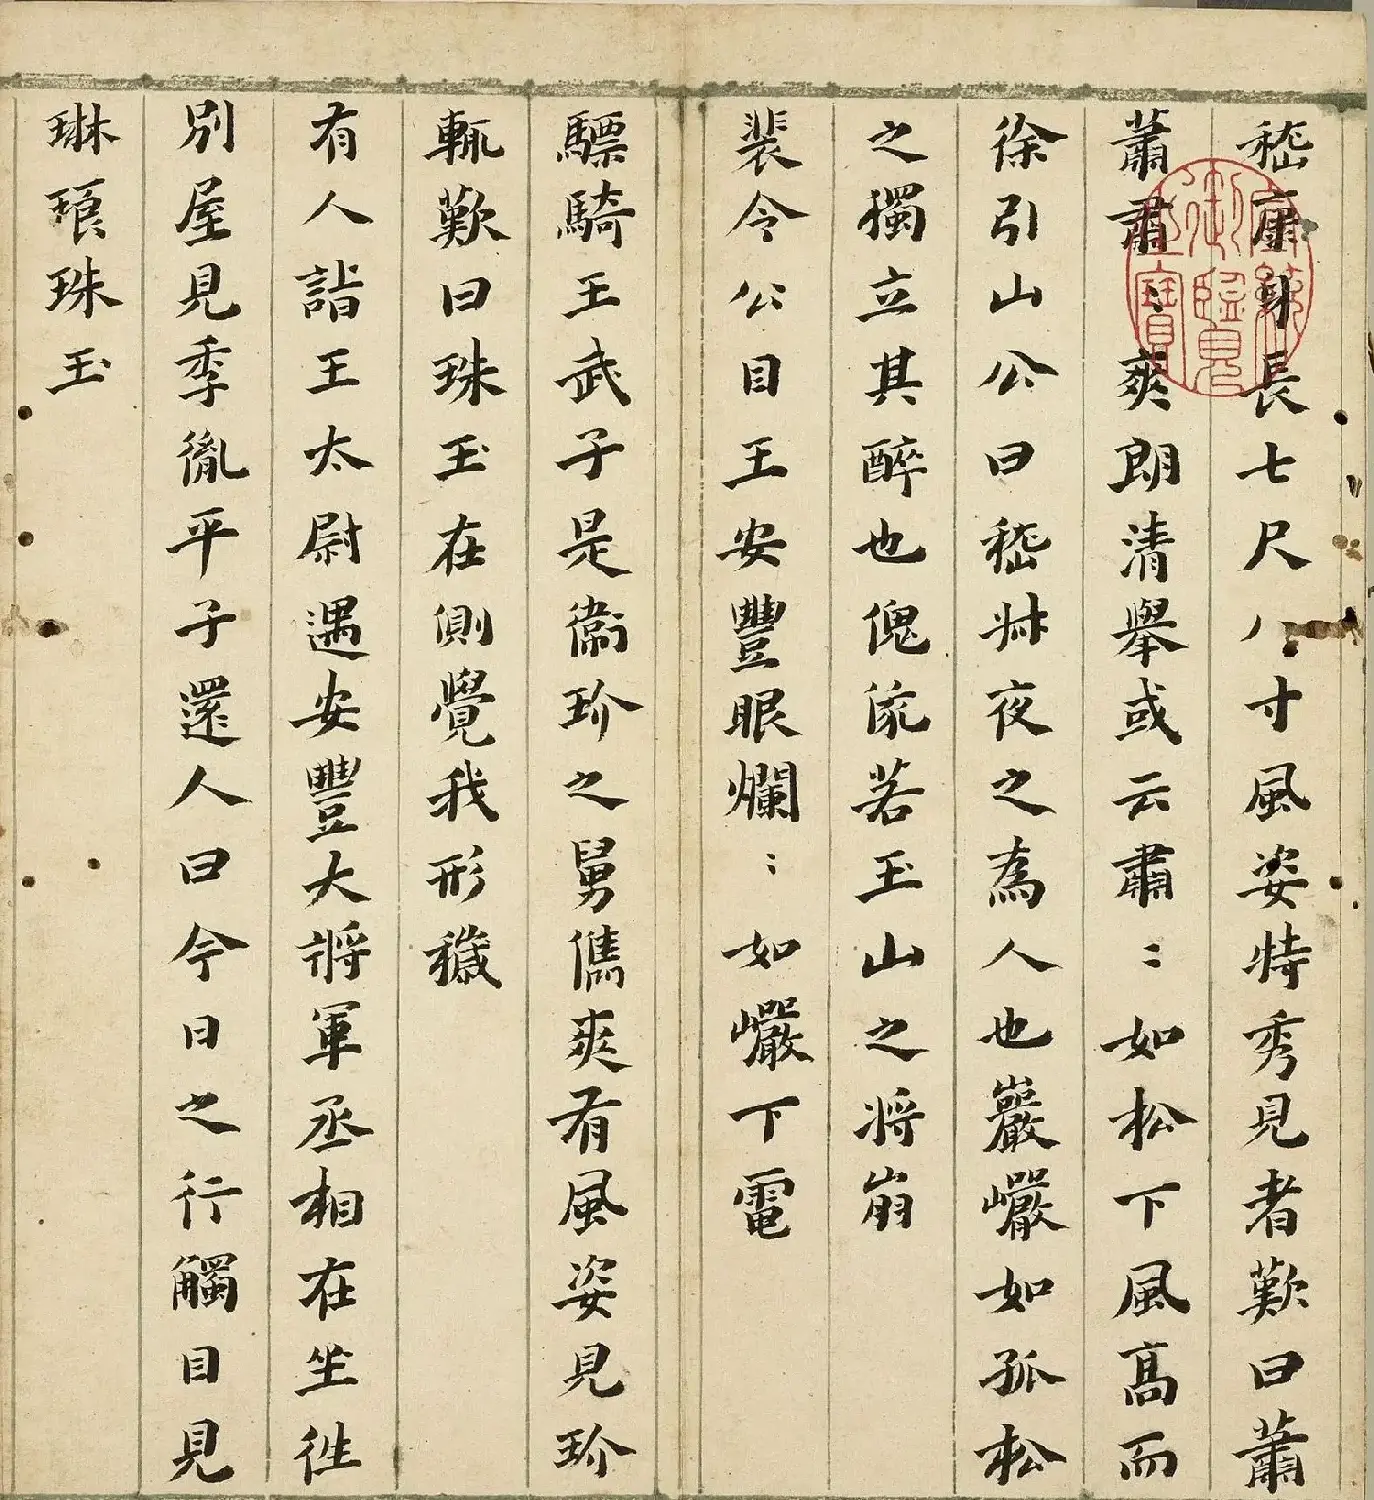 嵇康身長七尺八寸風姿特秀見者歎曰蕭
蕭肅〻爽朗清舉或云肅〻如松下風高而
徐引山公曰嵇叔夜之為人也巖巗如孤松
之獨立其醉也傀俄若玉山之將崩
裴令公目王安豐眼爛〻如巗下電
驃騎王武子是衛玠之舅儁爽有風姿見玠
輒歎曰珠玉在側覺我形穢
有人詣王太尉遇安豐大將軍丞相在坐往
別屋見季胤平子還人曰今日之行觸目見
琳琅珠玉
御覽之寶